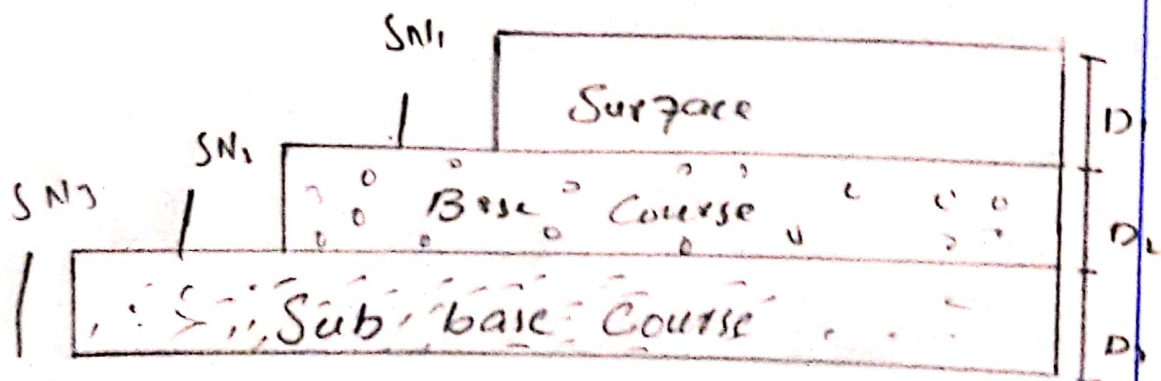 SN1
Surface
D1
SN2
Base Course
D2
SN3
Sub base Course
D3